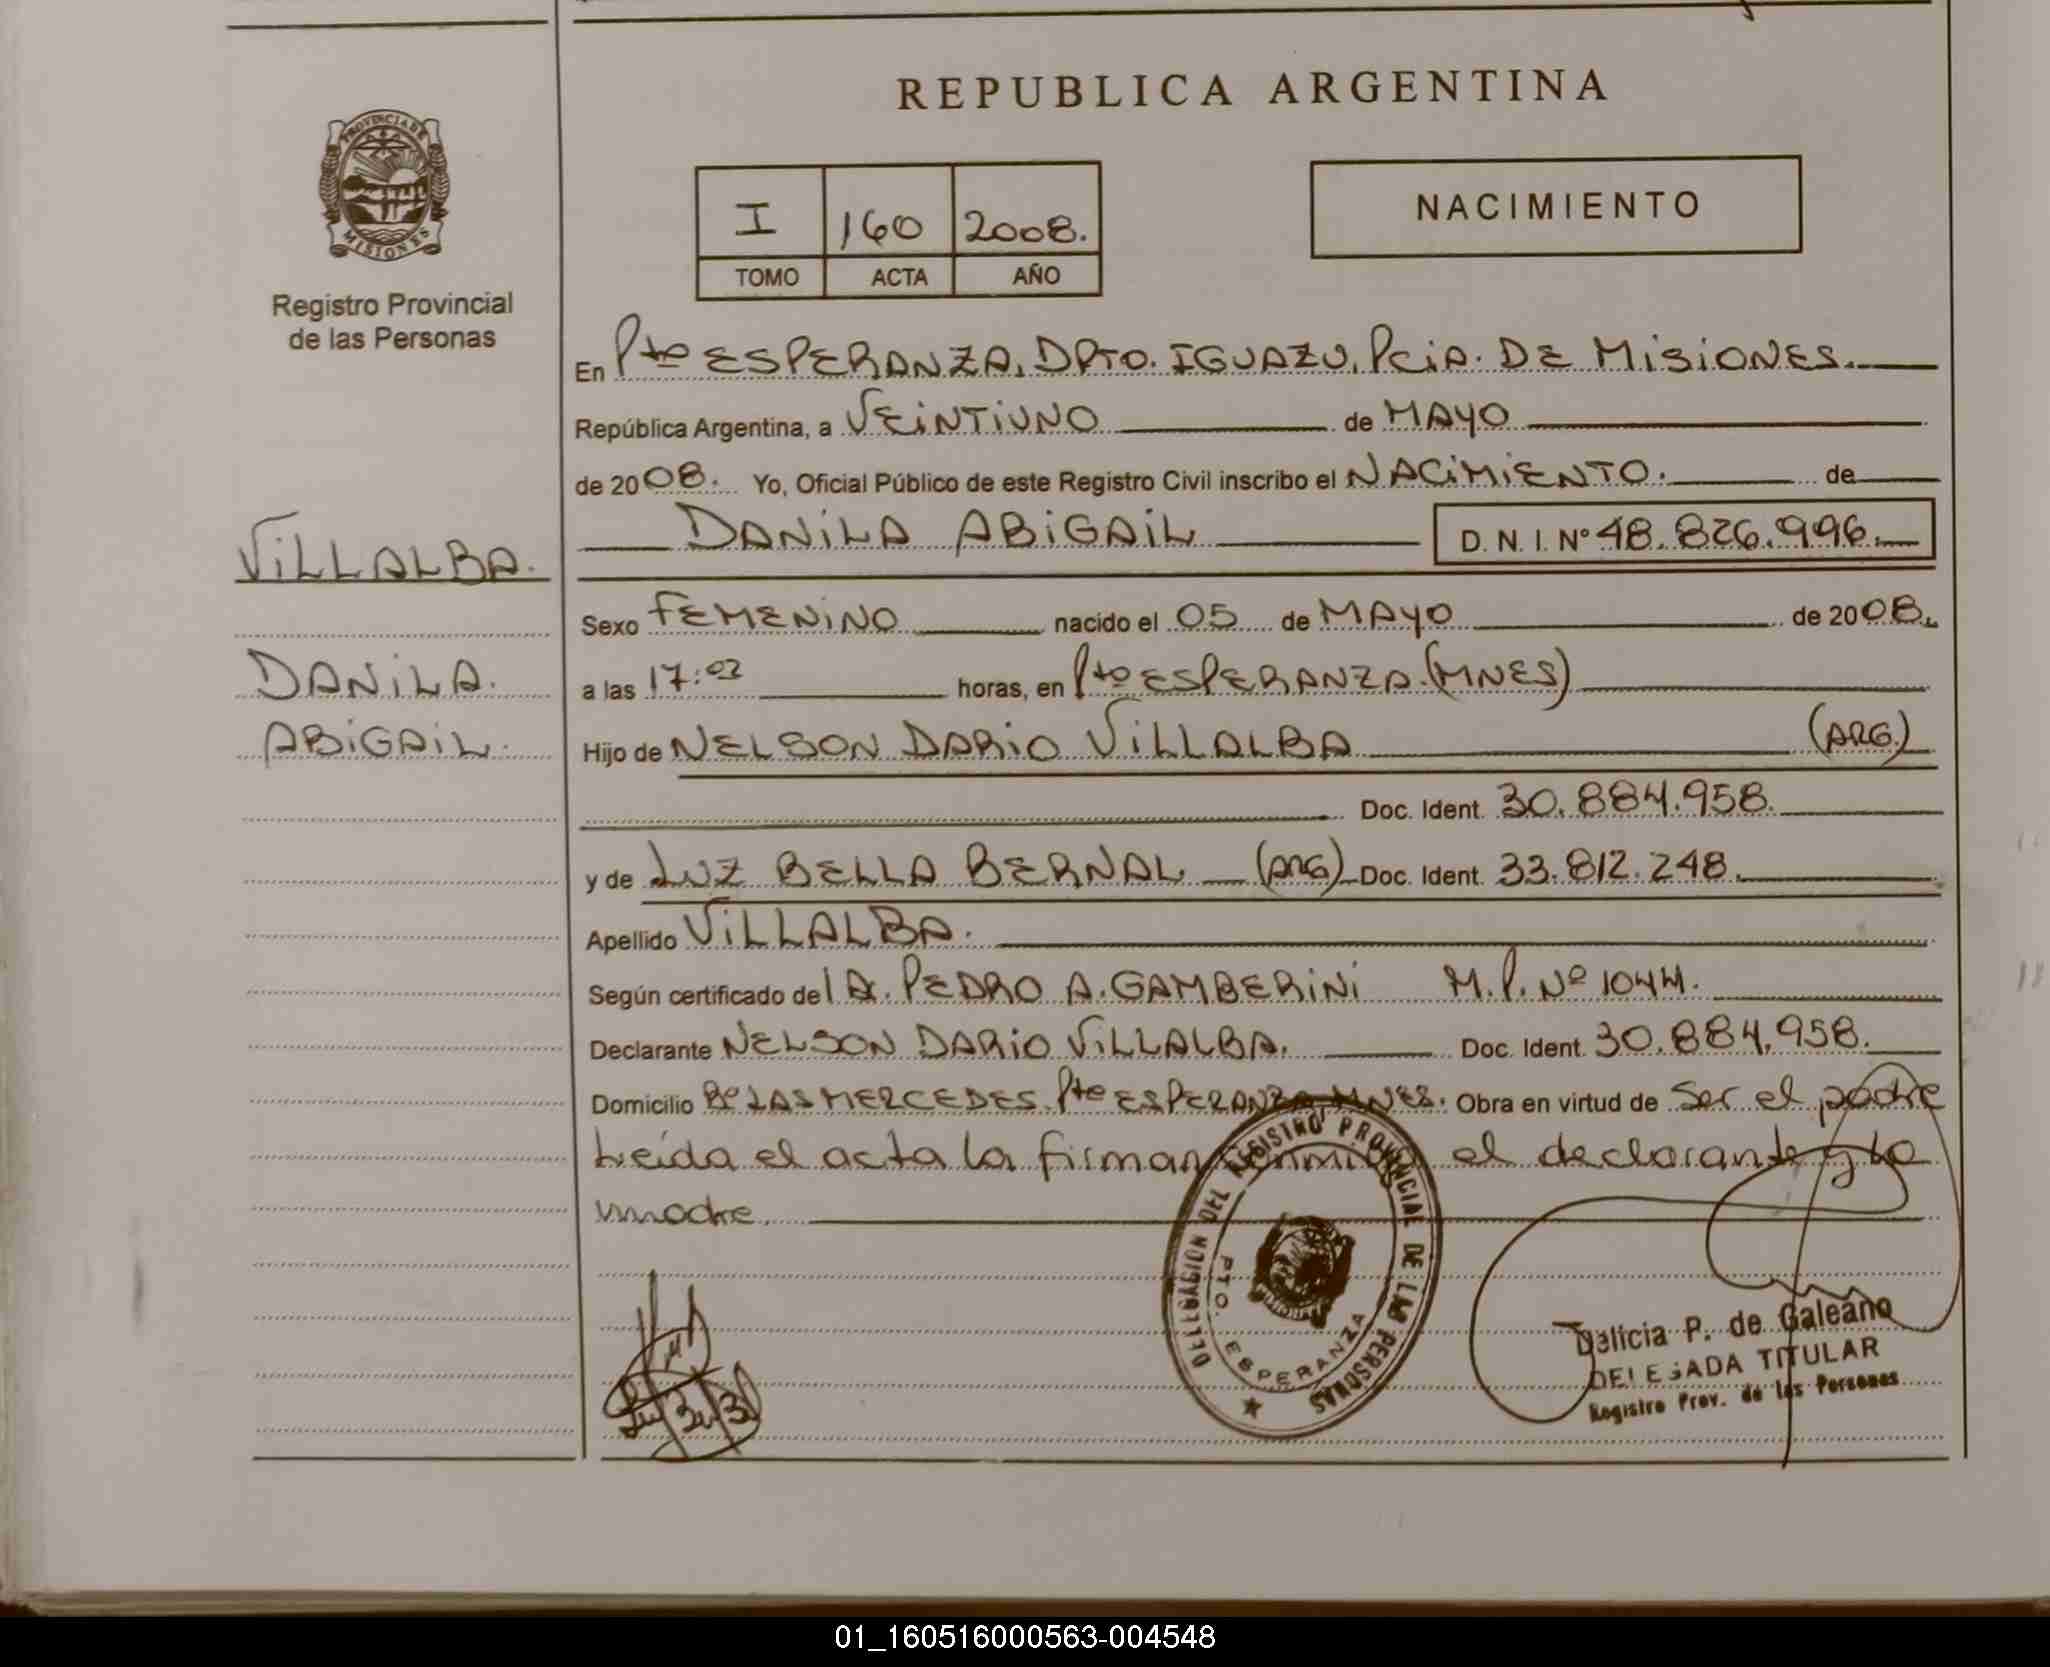 REPUBLICA ARGENTINA
PROVINCIA DE
MISIONES
Registro Provincial
de las Personas
I 160 2008.
TOMO ACTA AÑO
NACIMIENTO
En Pto ESPERANZA, DPTO. IGUAZU, PCiA. DE MiSiONES.
República Argentina, a VEiNTiUNO de MAYO
de 2008. Yo, Oficial Público de este Registro Civil inscribo el NACiMiENTO. de
DANiLA ABiGAiL D. N. I. Nº 48.826.996.
ViLLALBA.
DANiLA.
ABiGAiL.
Sexo FEMENiNO nacido el 05 de MAYO de 2008.
a las 17:02 horas, en Pto ESPERANZA. (MNES)
Hijo de NELSON DARiO ViLLALBA (ARG.)
Doc. Ident. 30.884.958.
y de LUZ BELLA BERNAL (ARG) Doc. Ident. 33.812.248.
Apellido ViLLALBA.
Según certificado de PEDRO A. GAMBERiNi M.P. Nº 1044.
Declarante NELSON DARiO ViLLALBA. Doc. Ident. 30.884.958.
Domicilio Bº LAS MERCEDES. Pto ESPERANZA MNES. Obra en virtud de Ser el padre
Leída el acta la firman conmigo el declarante y la
madre.
DELEGACION DEL REGISTRO PROVINCIAL DE LAS PERSONAS
PTO. ESPERANZA
Delicia P. de Galeano
DELEGADA TITULAR
Registro Prov. de las Personas
01_160516000563-004548